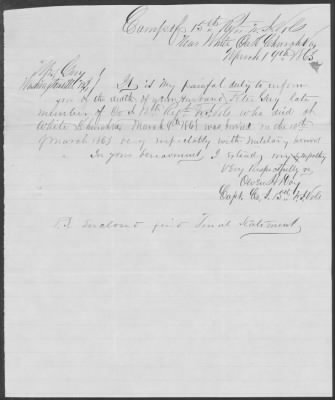 Camp of 15th Regt N J Vols
Near White Oak Church Va
March 19th 1863
Mrs Guy
Washington N J } It is my painful duty to inform
you of the death of your Husband Peter Guy late
member of Co I 15th Regt NJ Vols who died at
White March 9th 1863 was buried on the 10th
of March 1863 very respectably with military honors
In your bereavement, I extend my sympathy
Very Respectfully
Capt Co. I. 15th NJ Vols
P.S. Enclosed find Final Statement